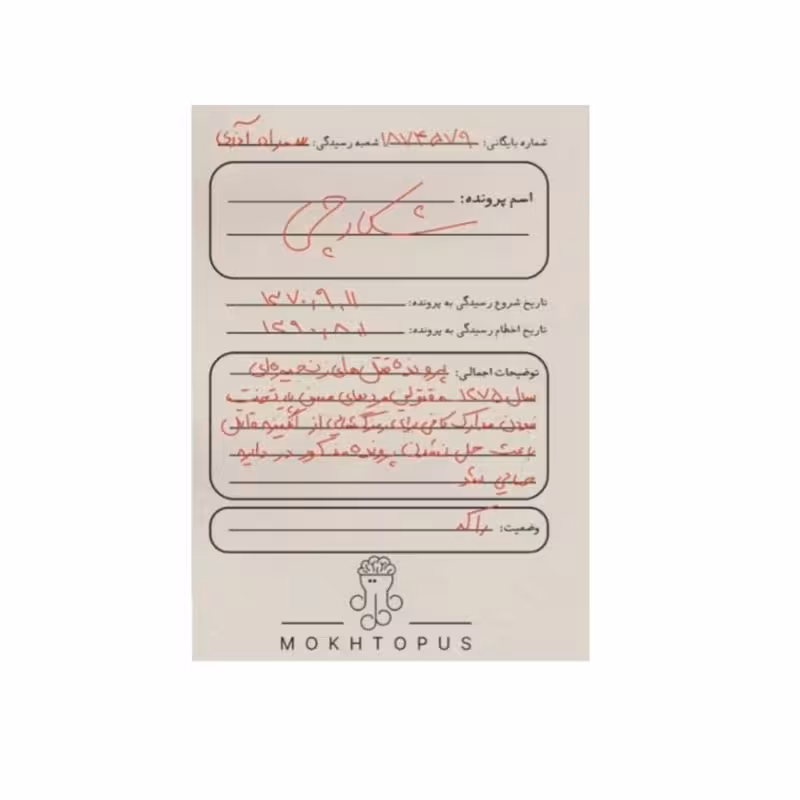 شماره بایگانی: ۱۸۷۴۵۷۹ شعبه رسیدگی: سهراه آذری
اسم پرونده:
شکارچی
تاریخ شروع رسیدگی به پرونده: ۱۳۷۰,۹,۱۱
تاریخ اختام رسیدگی به پرونده: ۱۳۹۰,۸,۱
توضیحات اجمالی: پرونده قتل های زنجیره‌ای
سال ۱۳۷۵ مقتولین مردهای مسن پایتخت
نبودن مدارک کافی برای از انگیزه قاتل
باعث حل نشدن پرونده مذکور در دایره
جنایی شد
وضعیت: راکد
MOKHTOPUS